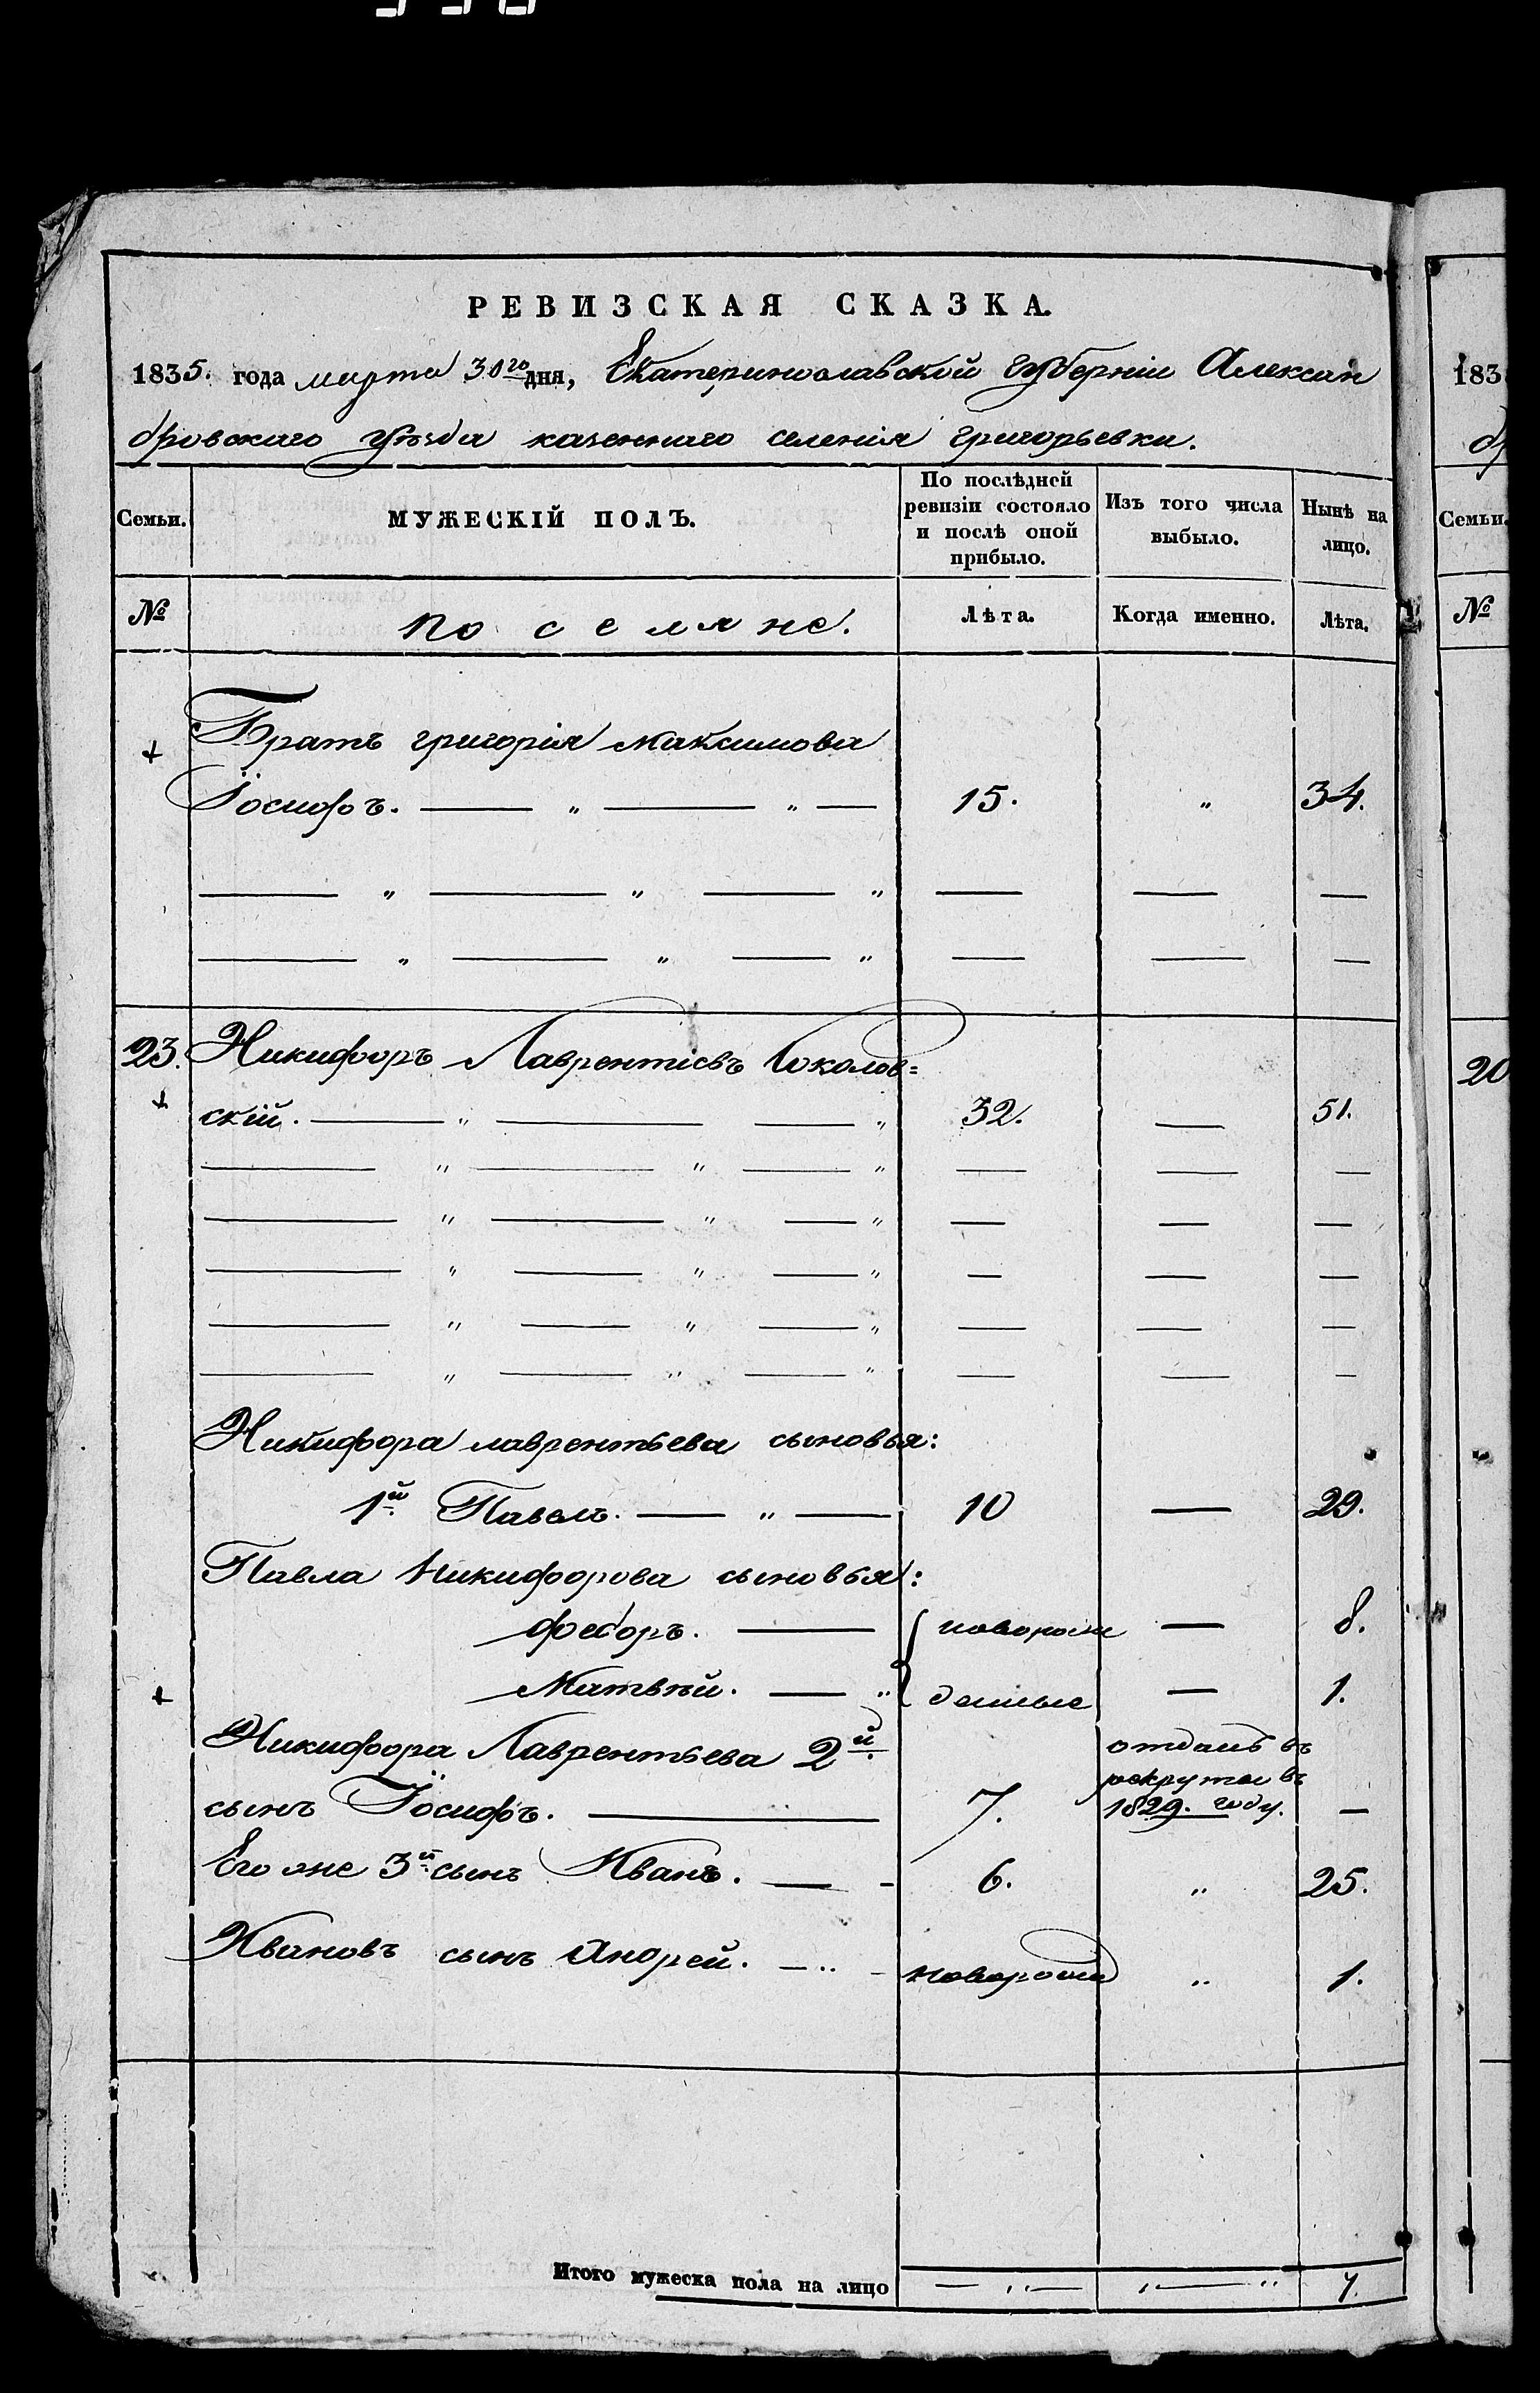 РЕВИЗСКАЯ СКАЗКА.
1835. года марта 30го дня, Екатеринославской губерніи Алексан
дровскаго уѣзда казеннаго селенія григорьевки.
Семьи. МУЖЕСКІЙ ПОЛЪ. По послѣдней ревизіи состояло и послѣ оной прибыло. Изъ того числа выбыло. Нынѣ на лицо.
№ поселяне. Лѣта. Когда именно. Лѣта.
Братъ григорія Максимова
Іосифъ. — „ — „ — 15. „ 34.
— „ — „ — „ — — —
— „ — „ — „ — — —
23. Никифоръ Лаврентіевъ Соколов=
скій. — „ — — „ 32. — 51.
— „ — „ — „ — — —
— „ — „ — „ — — —
— „ — „ — „ — — —
— „ — „ — „ — — —
— „ — „ — „ — — —
Никифора лаврентьева сыновья:
1й Павелъ. — „ — 10 — 29.
Павла Никифорова сыновья:
федоръ. — новорож — 8.
Матвѣй. — „ денные — 1.
Никифора Лаврентьева 2й отданъ въ
рекруты въ
сынъ Іосифъ. — 7. 1829. году. —
Его же 3й сынъ Иванъ. — - 6. „ 25.
Ивановъ сынъ Андрей. — „ - новорожд „ 1.
Итого мужеска пола на лицо — „ — „ — „ 7.
183
др
Семьи.
№
20